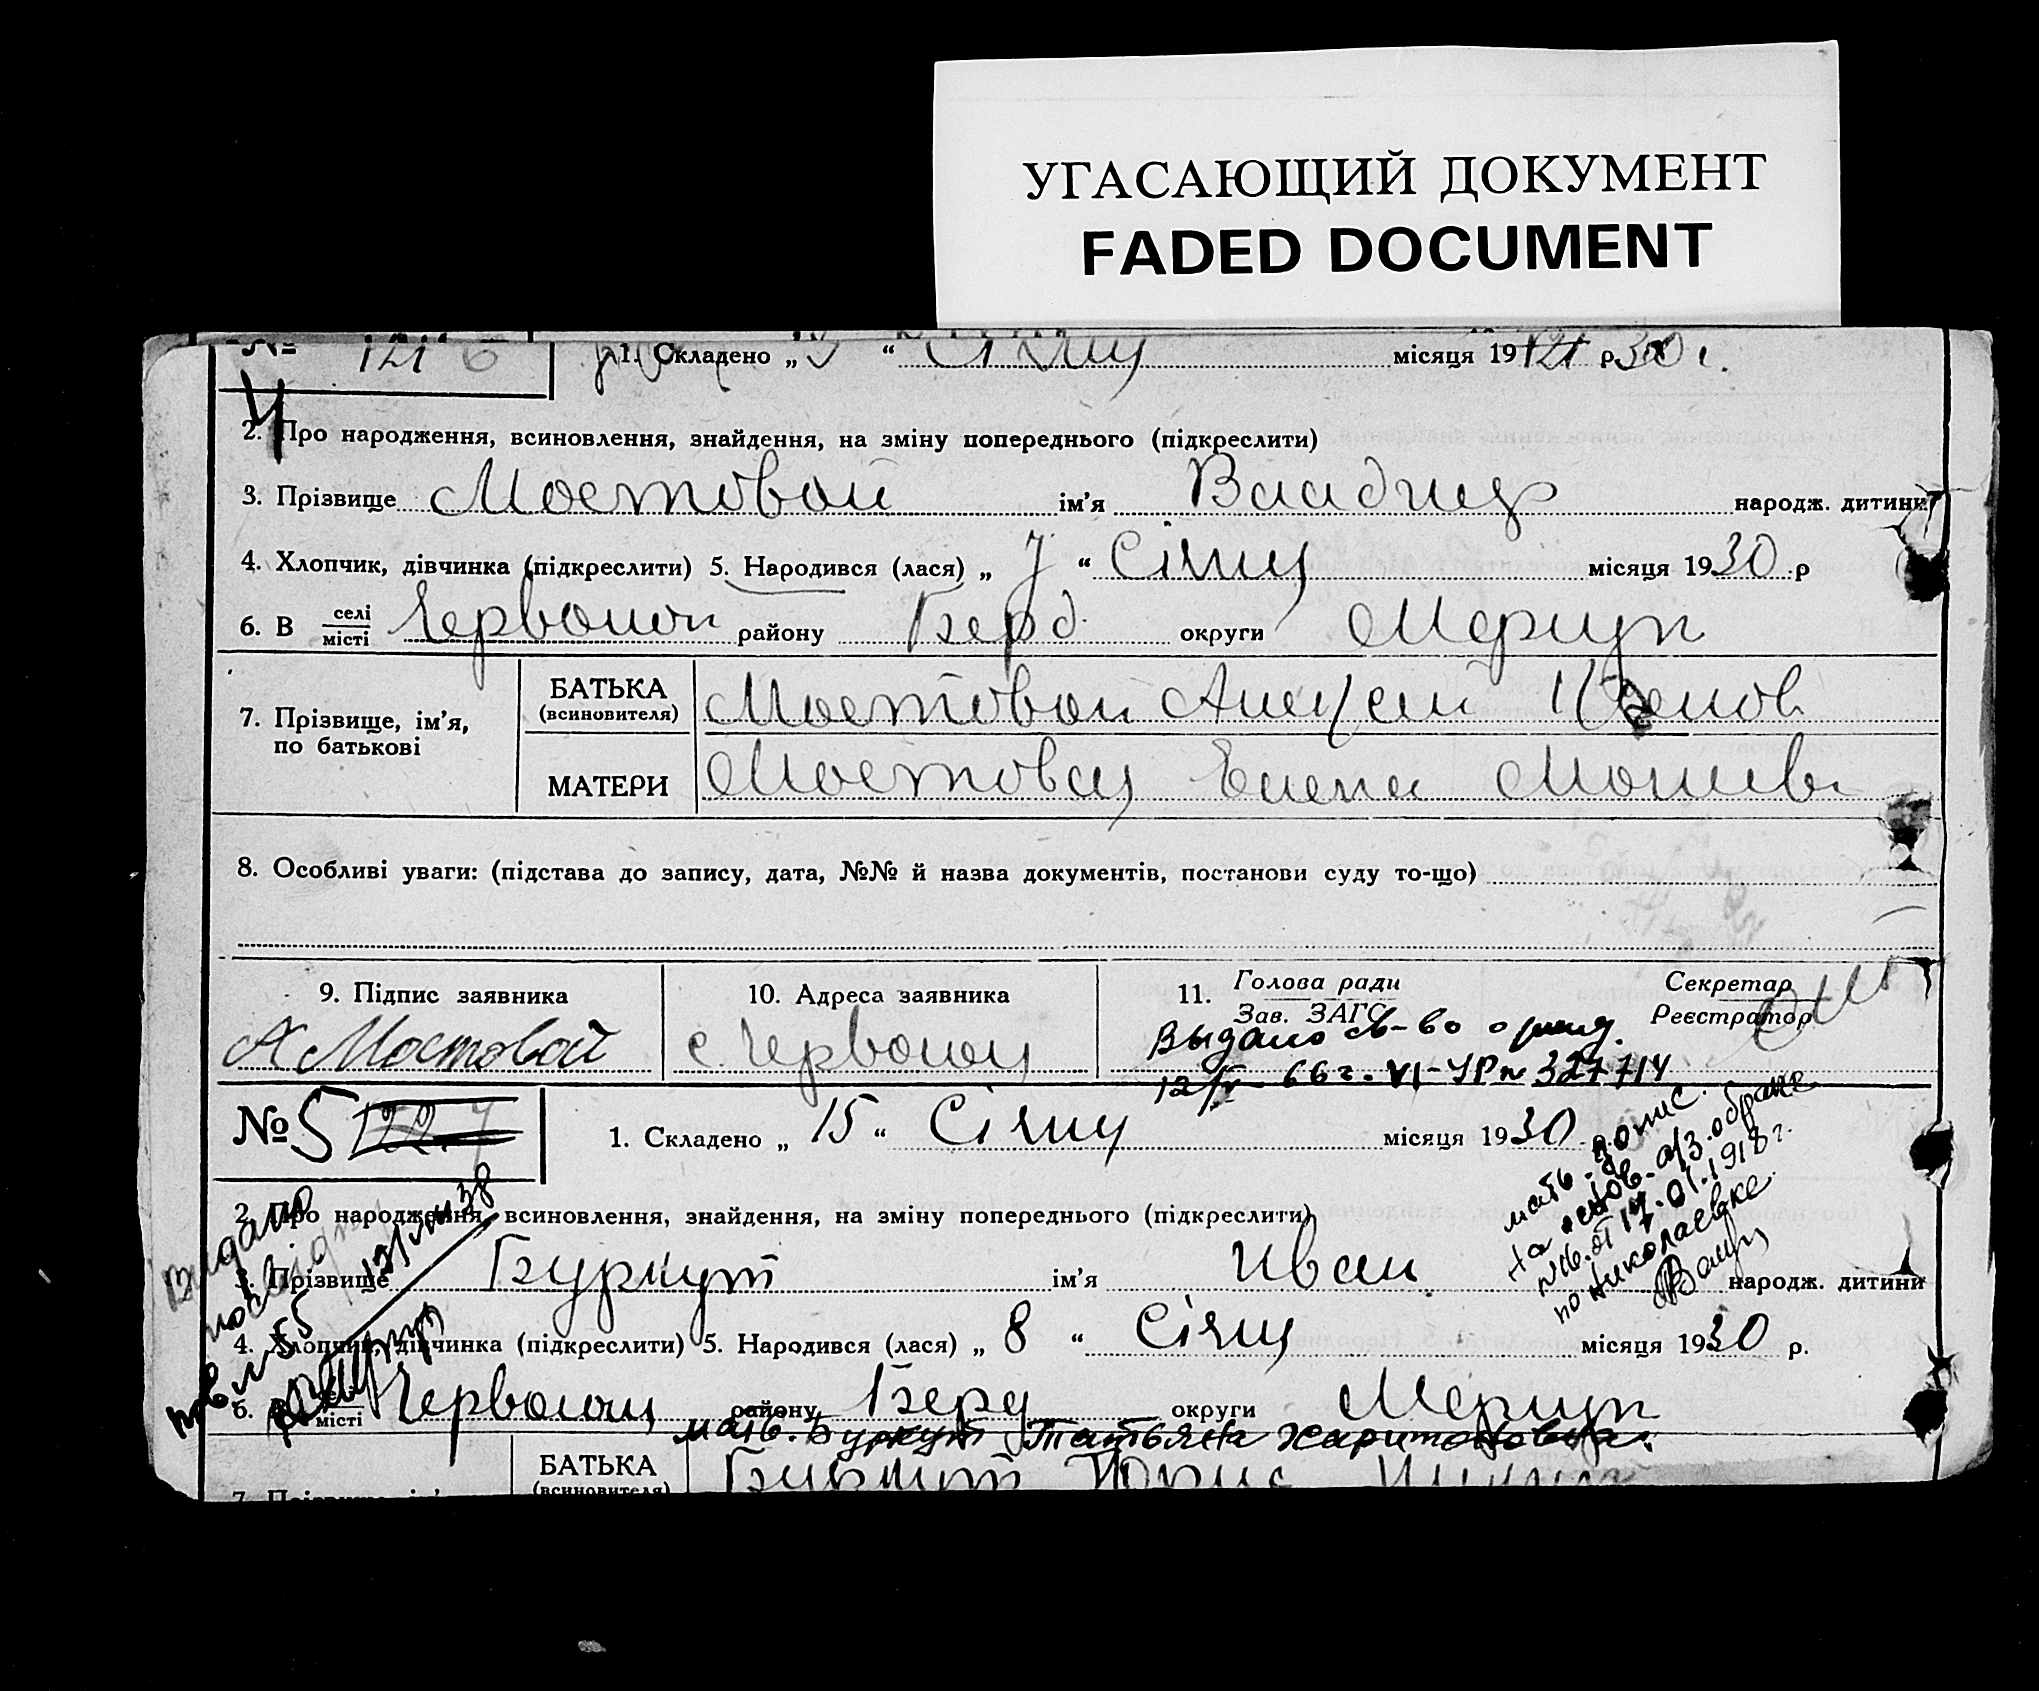 УГАСАЮЩИЙ ДОКУМЕНТ
FADED DOCUMENT
№ 1. Складено „ “ Січня місяця 19 р. 30 г.
4
2. Про народження, всиновлення, знайдення, на зміну попереднього (підкреслити)
3. Прізвище Мостовой ім’я Владимір народж. дитини
4. Хлопчик, дівчинка (підкреслити) 5. Народився (лася) „ 7 “ Січня місяця 1930 р
6. В селі місті Червоном району Берд. округи Маріуп
7. Прізвище, ім’я, по батькові
БАТЬКА (всиновителя) Мостовой Алексей
МАТЕРИ Мостовая Елена
8. Особливі уваги: (підстава до запису, дата, №№ й назва документів, постанови суду то-що)
9. Підпис заявника
10. Адреса заявника
11. Голова ради Зав. ЗАГС
Секретар Реєстратор
А Мостовой
с Червоном
Выдано св-во о рожд.
66 г. VI-УР № 327714
№ 5 1. Складено „ 15 “ Січня місяця 1930
мать. запис.
на основ. а/з. о браке
№16. от 17.01.1918 г.
по Николаевке.
2. Про народження, всиновлення, знайдення, на зміну попереднього (підкреслити)
Видано
3. Прізвище Буркут ім’я Иван народж. дитини
4. Хлопчик, дівчинка (підкреслити) 5. Народився (лася) „ 8 “ Січня місяця 1930 р.
6. В селі місті Червоном району Берд округи Маріуп
мать. Буркут Татьяна Харитоновна.
7. Прізвище, ім’я,
БАТЬКА (всиновителя) Буркут